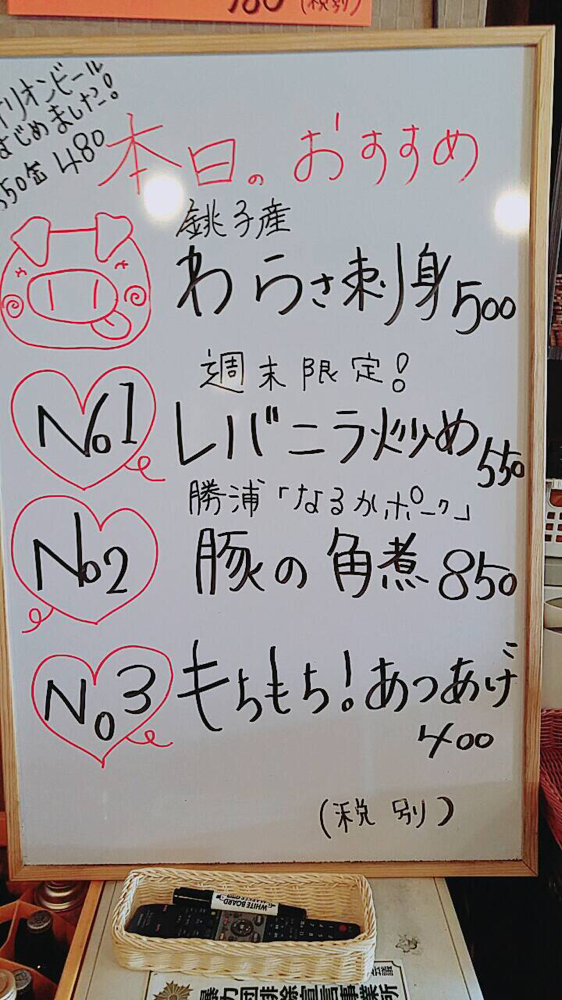 (税別)
オリオンビール
はじめました!
350缶 480
本日のおすすめ
銚子産
わらさ刺身 500
週末限定!
No1 レバニラ炒め 550
勝浦「なるかポーク」
No2 豚の角煮 850
No.3 もちもち!あつあげ
400
(税別)
WHITE BOARD
暴力団排除宣言事業所